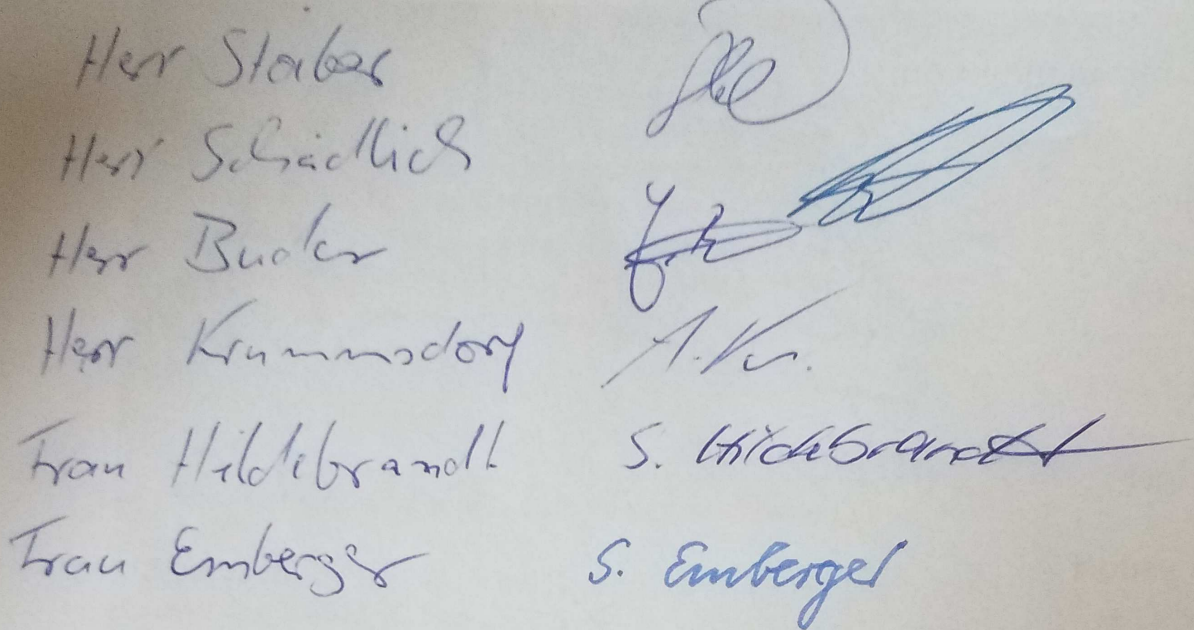 Herr Steiber
Herr Schädlich
Herr
Herr Krummsdorf A. Kr.
Frau Hildebrandt S. Hildebrandt
Frau Emberger S. Emberger